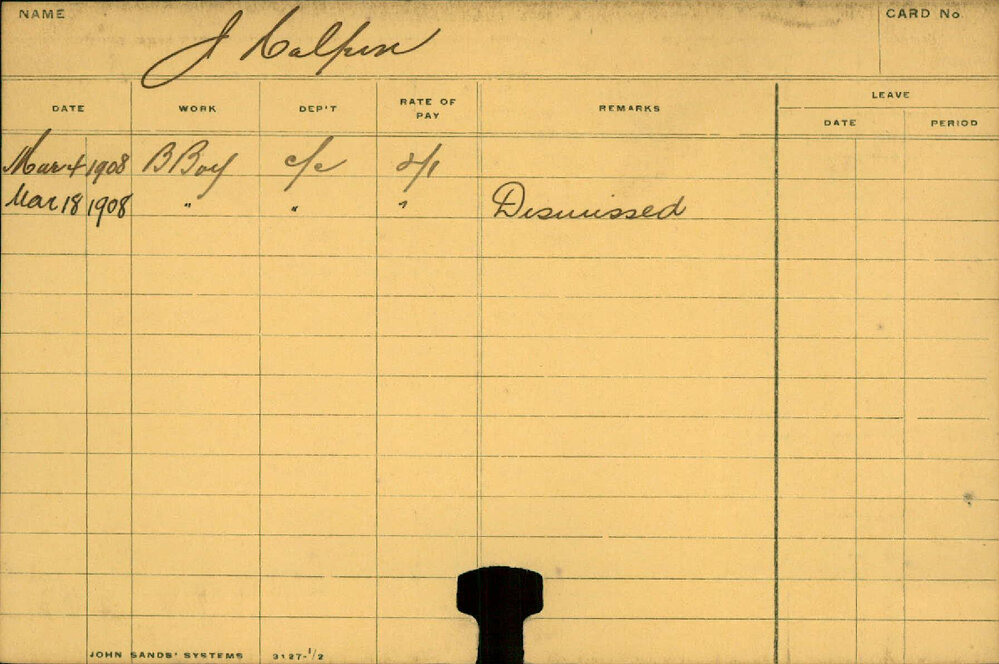 NAME
J Halpin
CARD No.
DATE WORK DEP'T RATE OF PAY REMARKS LEAVE
DATE PERIOD
Mar 4 1908 B Boy c/c
Mar 18 1908 " " " Dismissed
JOHN SANDS' SYSTEMS 3127-1/2